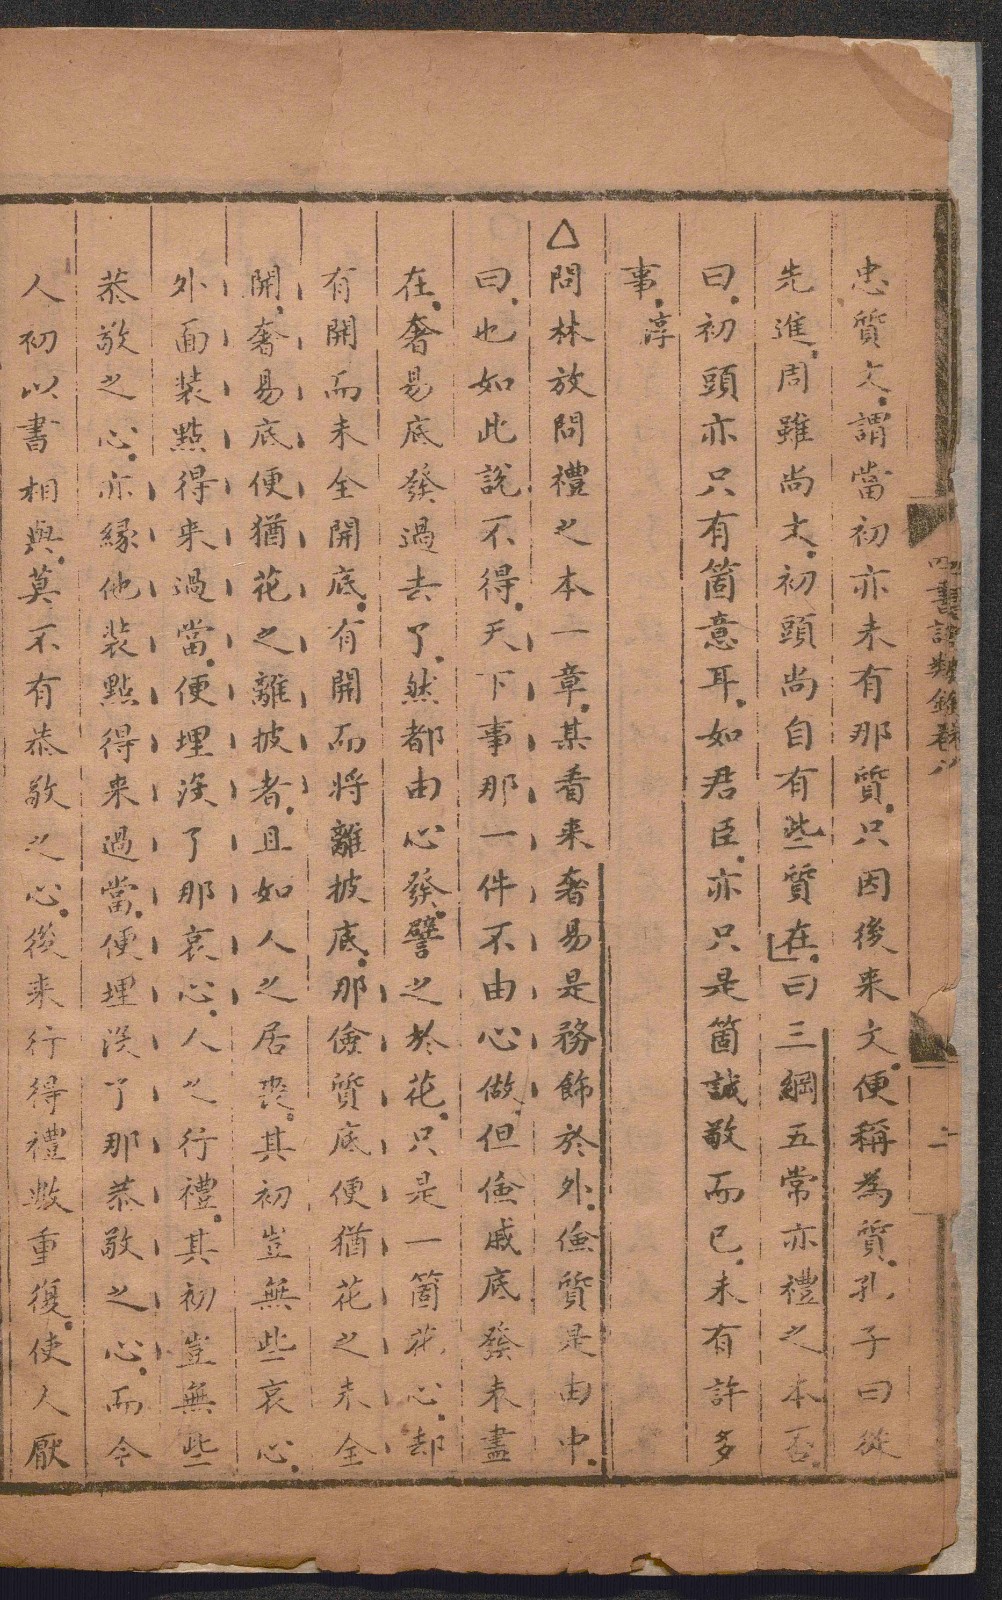 忠質文謂當初亦未有那質只因後来文便稱為質孔子曰從
先進周雖尚文初頭尚自有些質在曰三綱五常亦禮之本否
曰初頭亦只有箇意耳如君臣亦只是箇誠敬而已未有許多
事淳
△問林放問禮之本一章某看来奢易是務飾於外儉質是由中
曰也如此說不得天下事那一件不由心做但儉戚底發未盡
在奢易底發過去了然都由心發譬之於花只是一箇花心却
有開而未全開底有開而将離披底那儉質底便猶花之未全
開奢易底便猶花之離披者且如人之居喪其初豈無些哀心
外面裝點得来過當便埋没了那哀心人之行禮其初豈無些
恭敬之心亦緣他裝點得来過當便埋没了那恭敬之心而今
人初以書相與莫不有恭敬之心後来行得禮數重復使人厭